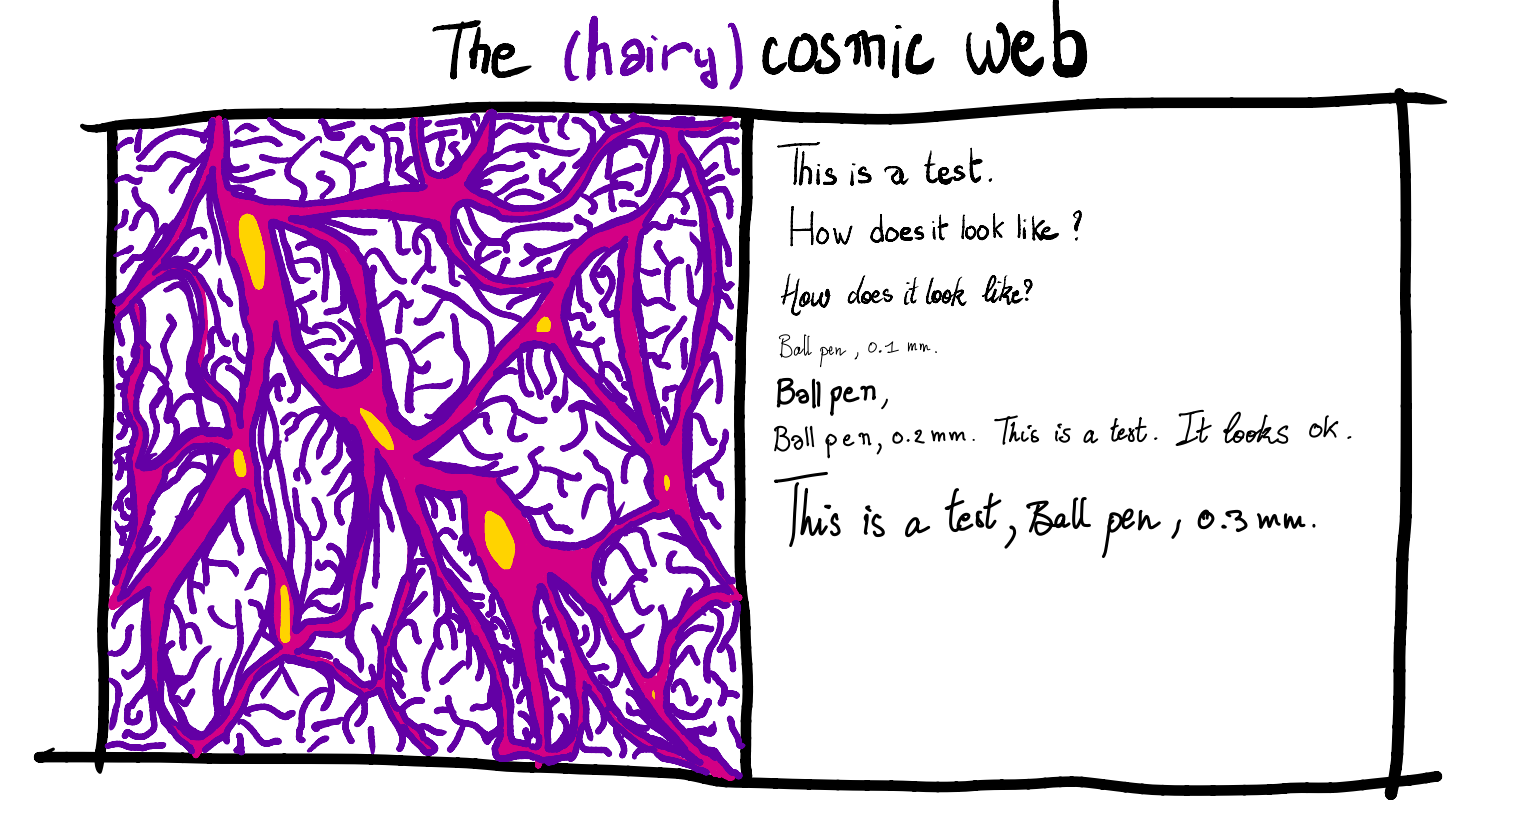 The (hairy) cosmic web
This is a test.
How does it look like ?
How does it look like?
Ball pen, 0.1 mm.
Ball pen,
Ball pen, 0.2 mm. This is a test. It looks ok.
This is a test, Ball pen, 0.3 mm.